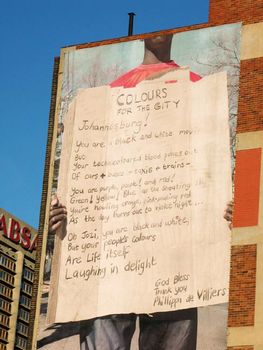 COLOURS
FOR THE CITY
Johannesburg!
You are a black and white movie
But
Your technicoloured blood pulses out
Of cars + buses - taxis + trains-
You are purple, pink! and red!
Green! Yellow! Blue as
You're howling orange,
As the day turns out to
Oh Jozi, you are black and white,
But your people's colours
Are Life itself
Laughing in delight
God Bless
Thank you
Phillippa de Villiers
ABSA